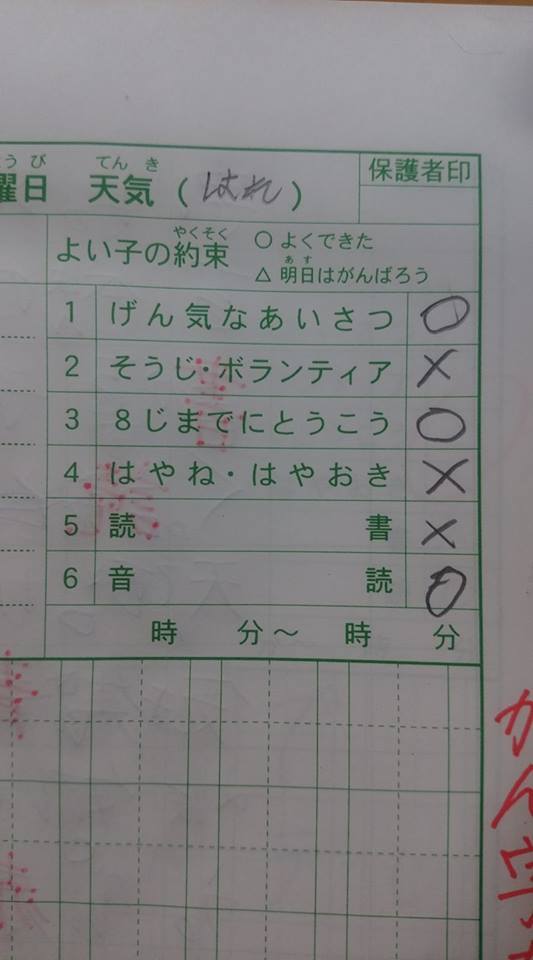 保護者印
うび てんき
曜日 天気(はれ)
やくそく
よい子の約束 ○よくできた
あす
△明日はがんばろう
1 げん気なあいさつ ○
2 そうじ・ボランティア ×
3 8じまでにとうこう ○
4 はやね・はやおき ×
5 読書 ×
6 音読 ○
時 分~ 時 分